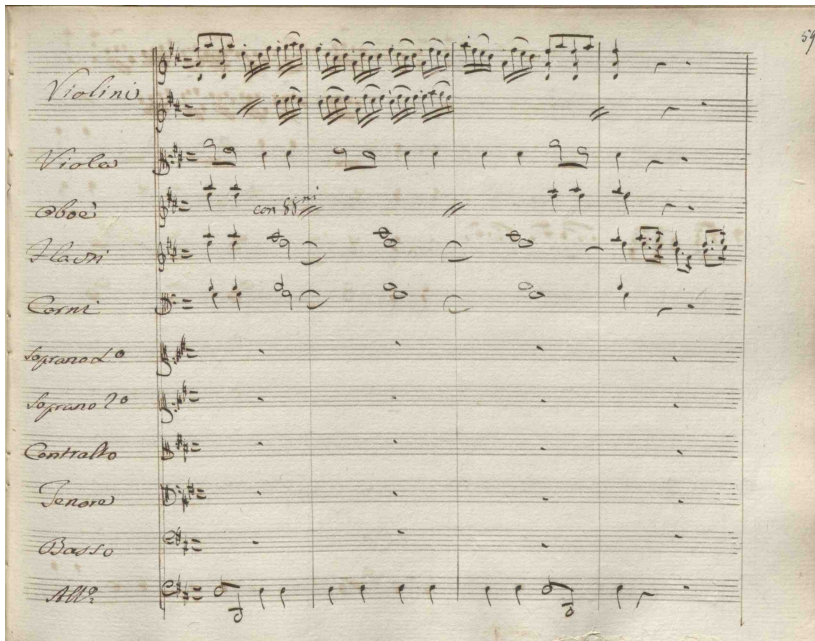 59
Violini
Viola
Oboè
con VVni
Flauti
Corni
Soprano 1o
Soprano 2o
Contralto
Tenore
Basso
Allo